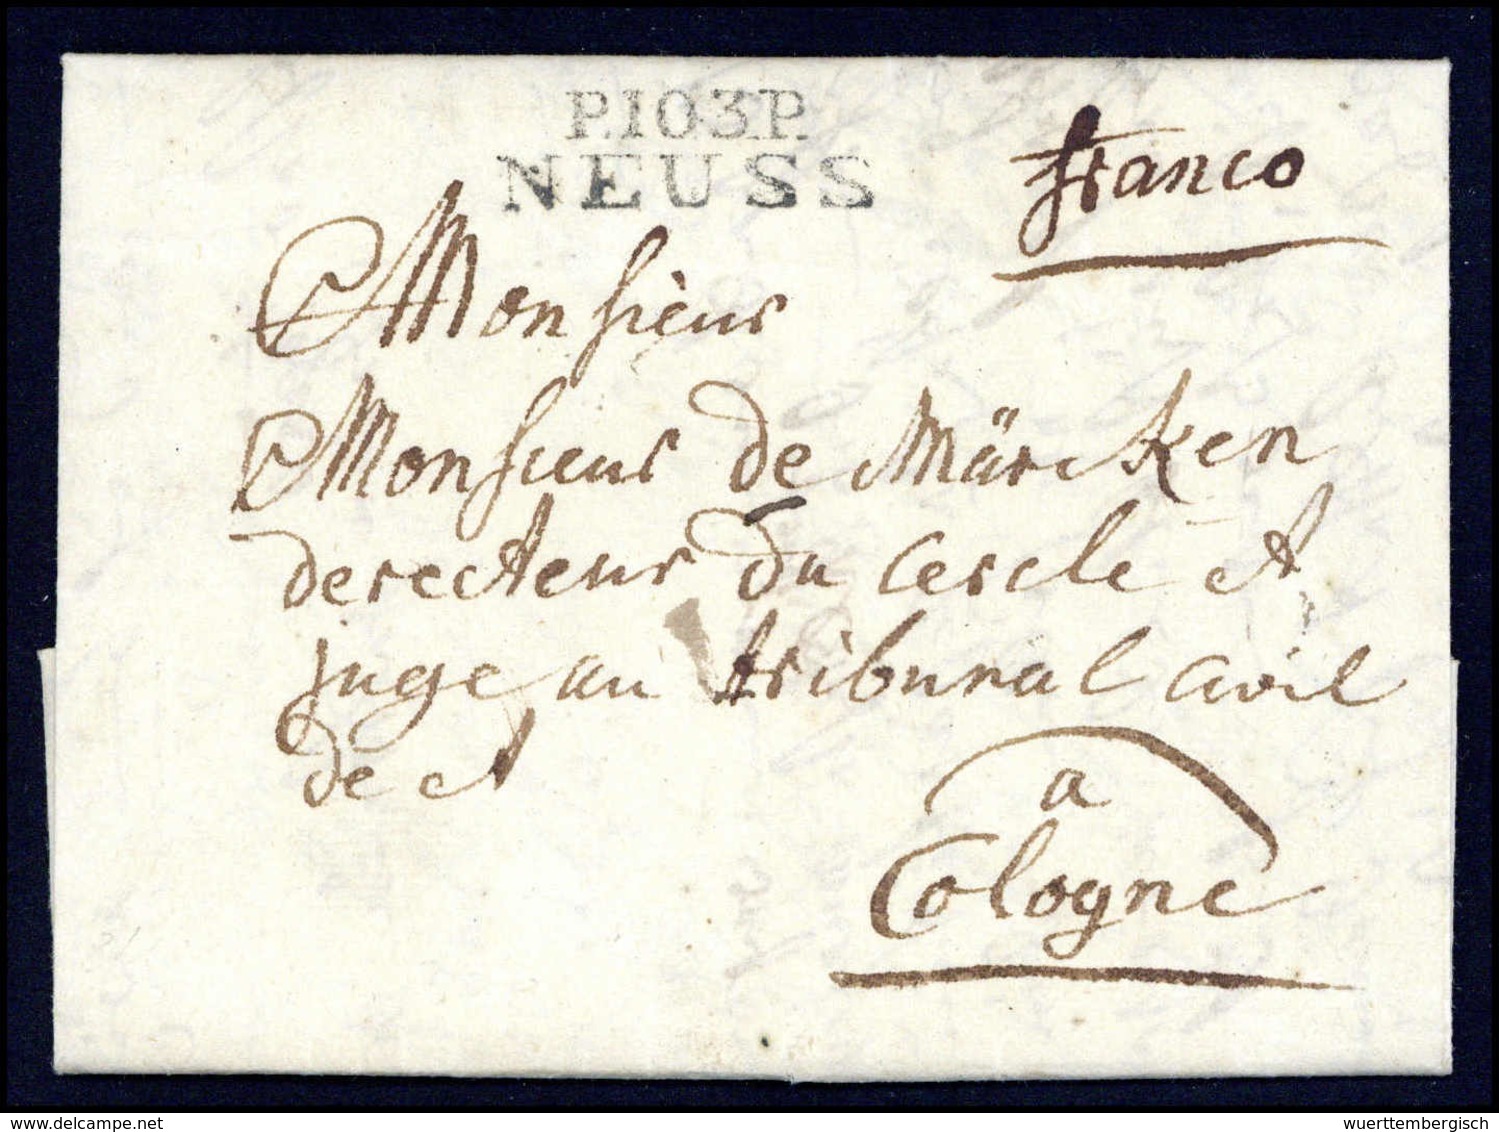 P.103.P.
NEUSS
franco
Monsieur
Monsieur de Märcken
derecteur du cercle et
juge au tribunal civil
de et
a
Cologne
delcampe.net
wuerttembergisch